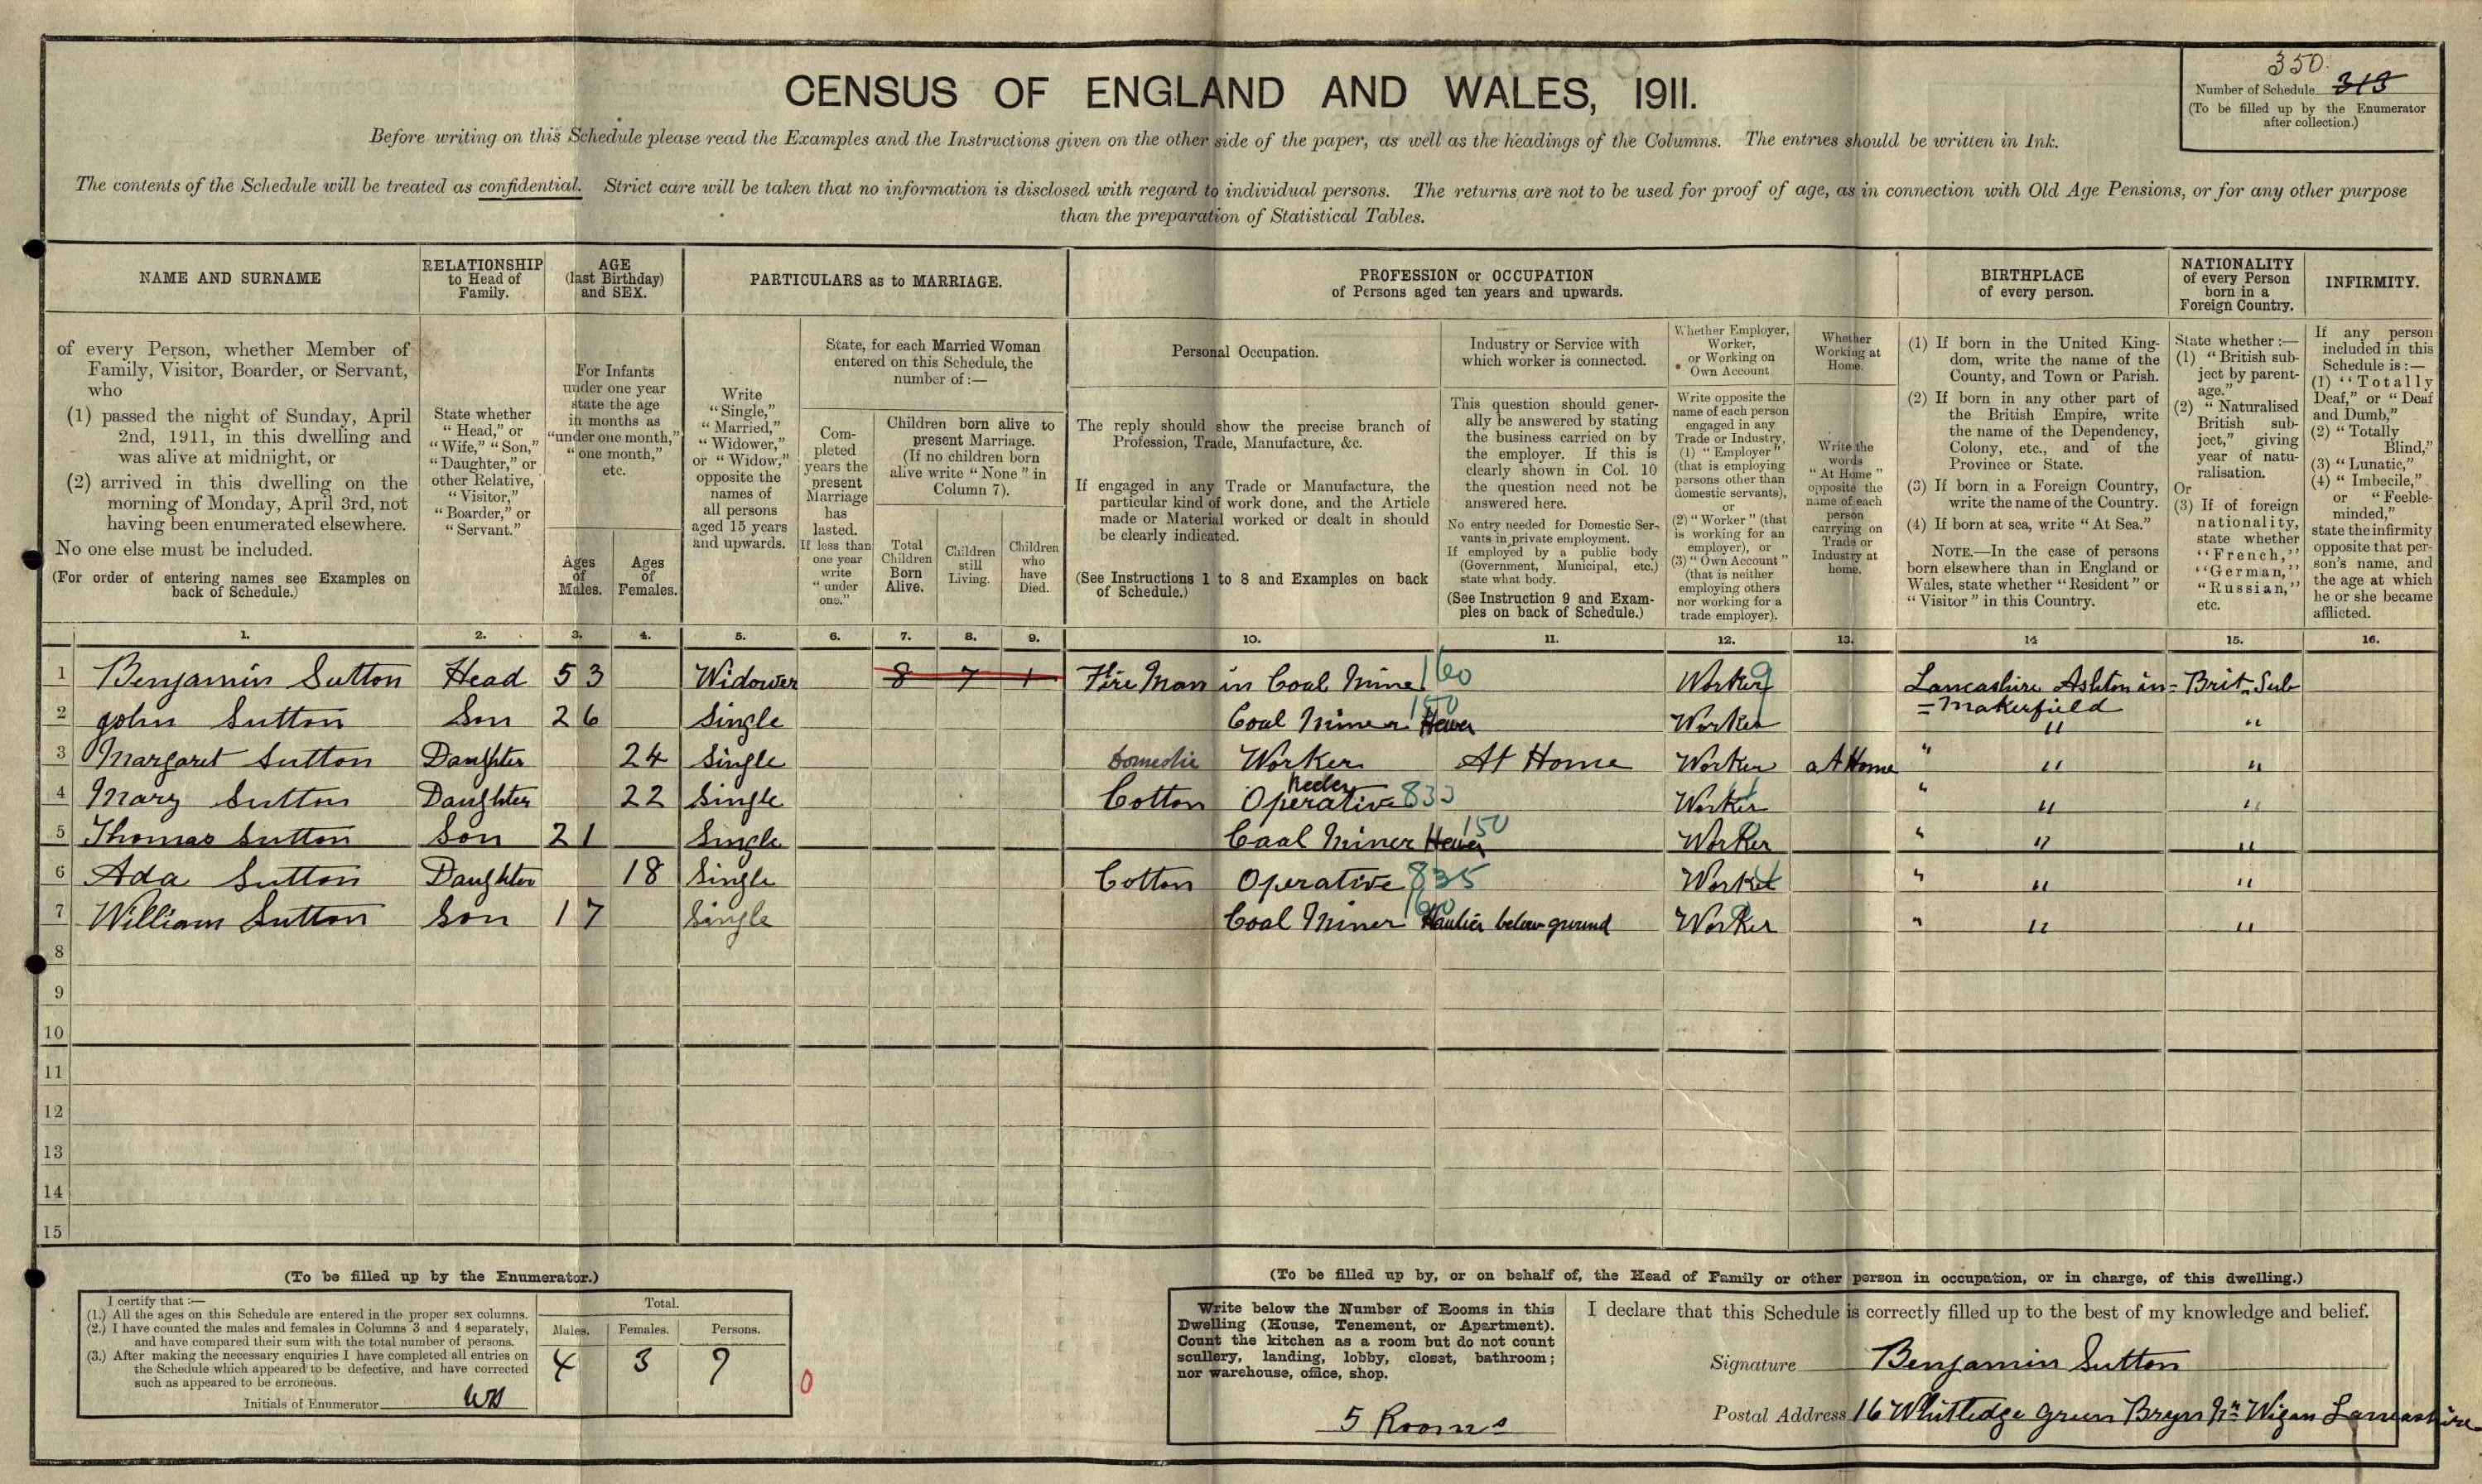 CENSUS OF ENGLAND AND WALES, 1911.
350.
Number of Schedule 313
(To be filled up by the Enumerator
after collection.)
Before writing on this Schedule please read the Examples and the Instructions given on the other side of the paper, as well as the headings of the Columns. The entries should be written in Ink.
The contents of the Schedule will be treated as confidential. Strict care will be taken that no information is disclosed with regard to individual persons. The returns are not to be used for proof of age, as in connection with Old Age Pensions, or for any other purpose
than the preparation of Statistical Tables.
NAME AND SURNAME
of every Person, whether Member of
Family, Visitor, Boarder, or Servant,
who
(1) passed the night of Sunday, April
2nd, 1911, in this dwelling and
was alive at midnight, or
(2) arrived in this dwelling on the
morning of Monday, April 3rd, not
having been enumerated elsewhere.
No one else must be included.
(For order of entering names see Examples on
back of Schedule.)
RELATIONSHIP
to Head of
Family.
State whether
"Head," or
"Wife," "Son,"
"Daughter," or
other Relative,
"Visitor,"
"Boarder," or
"Servant."
AGE
(last Birthday)
and SEX.
For Infants
under one year
state the age
in months as
"under one month,"
"one month,"
etc.
Ages
of
Males.
Ages
of
Females.
PARTICULARS as to MARRIAGE.
Write
"Single,"
"Married,"
"Widower,"
or "Widow,"
opposite the
names of
all persons
aged 15 years
and upwards.
State, for each Married Woman
entered on this Schedule, the
number of :—
Com-
pleted
years the
present
Marriage
has
lasted.
If less than
one year
write
"under
one."
Children born alive to
present Marriage.
(If no children born
alive write "None" in
Column 7).
Total
Children
Born
Alive.
Children
still
Living.
Children
who
have
Died.
PROFESSION or OCCUPATION
of Persons aged ten years and upwards.
Personal Occupation.
The reply should show the precise branch of
Profession, Trade, Manufacture, &c.
If engaged in any Trade or Manufacture, the
particular kind of work done, and the Article
made or Material worked or dealt in should
be clearly indicated.
(See Instructions 1 to 8 and Examples on back
of Schedule.)
Industry or Service with
which worker is connected.
This question should gener-
ally be answered by stating
the business carried on by
the employer. If this is
clearly shown in Col. 10
the question need not be
answered here.
No entry needed for Domestic Ser-
vants in private employment.
If employed by a public body
(Government, Municipal, etc.)
state what body.
(See Instruction 9 and Exam-
ples on back of Schedule.)
Whether Employer,
Worker,
or Working on
Own Account
Write opposite the
name of each person
engaged in any
Trade or Industry,
(1) "Employer"
(that is employing
persons other than
domestic servants),
or
(2) "Worker" (that
is working for an
employer), or
(3) "Own Account"
(that is neither
employing others
nor working for a
trade employer).
Whether
Working at
Home.
Write the
words
"At Home"
opposite the
name of each
person
carrying on
Trade or
Industry at
home.
BIRTHPLACE
of every person.
(1) If born in the United King-
dom, write the name of the
County, and Town or Parish.
(2) If born in any other part of
the British Empire, write
the name of the Dependency,
Colony, etc., and of the
Province or State.
(3) If born in a Foreign Country,
write the name of the Country.
(4) If born at sea, write "At Sea."
NOTE.—In the case of persons
born elsewhere than in England or
Wales, state whether "Resident" or
"Visitor" in this Country.
NATIONALITY
of every Person
born in a
Foreign Country.
State whether :—
(1) "British sub-
ject by parent-
age."
(2) "Naturalised
British sub-
ject," giving
year of natu-
ralisation.
Or
(3) If of foreign
nationality,
state whether
"French,"
"German,"
"Russian,"
etc.
INFIRMITY.
If any person
included in this
Schedule is :—
(1) "Totally
Deaf," or "Deaf
and Dumb,"
(2) "Totally
Blind,"
(3) "Lunatic,"
(4) "Imbecile,"
or "Feeble-
minded,"
state the infirmity
opposite that per-
son's name, and
the age at which
he or she became
afflicted.
1. 2. 3. 4. 5. 6. 7. 8. 9. 10. 11. 12. 13. 14 15. 16.
1 Benjamin Sutton Head 53 Widower 8 7 1 Fire Man in Coal Mine 160 Worker Lancashire Ashton in = Brit. Sub
= Makerfield
2 John Sutton Son 26 Single Coal Miner Hewer 150 Worker " "
3 Margaret Sutton Daughter 24 Single Domestic Worker At Home Worker at Home " " "
4 Mary Sutton Daughter 22 Single Cotton Reeler Operative 833 Worker " " "
5 Thomas Sutton Son 21 Single Coal Miner Hewer 150 Worker " " "
6 Ada Sutton Daughter 18 Single Cotton Operative 835 Worker " " "
7 William Sutton Son 17 Single Coal Miner Haulier below ground 160 Worker " " "
8
9
10
11
12
13
14
15
(To be filled up by the Enumerator.)
I certify that :—
(1.) All the ages on this Schedule are entered in the proper sex columns.
(2.) I have counted the males and females in Columns 3 and 4 separately,
and have compared their sum with the total number of persons.
(3.) After making the necessary enquiries I have completed all entries on
the Schedule which appeared to be defective, and have corrected
such as appeared to be erroneous.
Initials of Enumerator
Total.
Males. Females. Persons.
4 3 7
0
(To be filled up by, or on behalf of, the Head of Family or other person in occupation, or in charge, of this dwelling.)
Write below the Number of Rooms in this
Dwelling (House, Tenement, or Apartment).
Count the kitchen as a room but do not count
scullery, landing, lobby, closet, bathroom;
nor warehouse, office, shop.
5 Rooms
I declare that this Schedule is correctly filled up to the best of my knowledge and belief.
Signature Benjamin Sutton
Postal Address 16 Whitledge Green Bryn Nr Wigan Lancashire